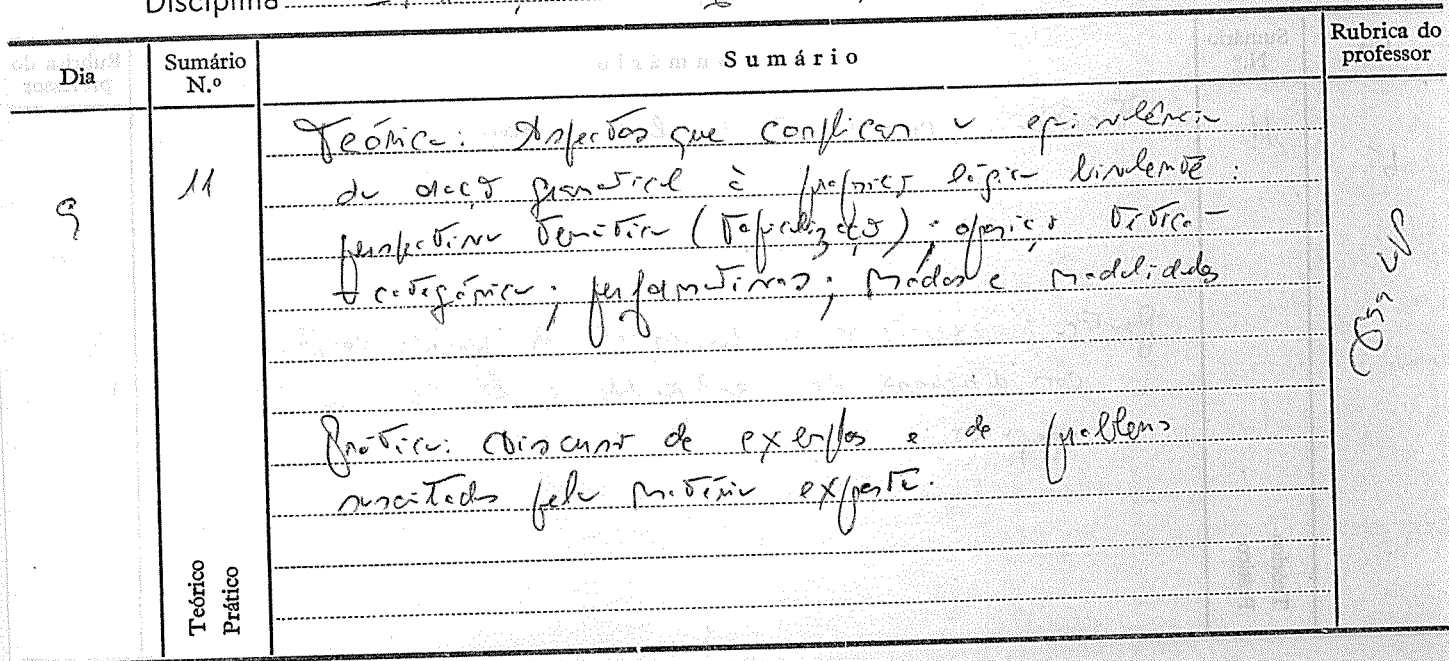 Disciplina
Dia
Sumário N.º
Sumário
Rubrica do professor
9
11
Teórica: Aspectos que complicam a equivalência
da oração gramatical à proposição lógica :
perspectiva temática (topicalização) ; oposição tética-
categórica ; performativas ; modos e modalidades
Prática: Discussão de exemplos e de problemas
suscitados pela matéria exposta.
Teórico
Prático